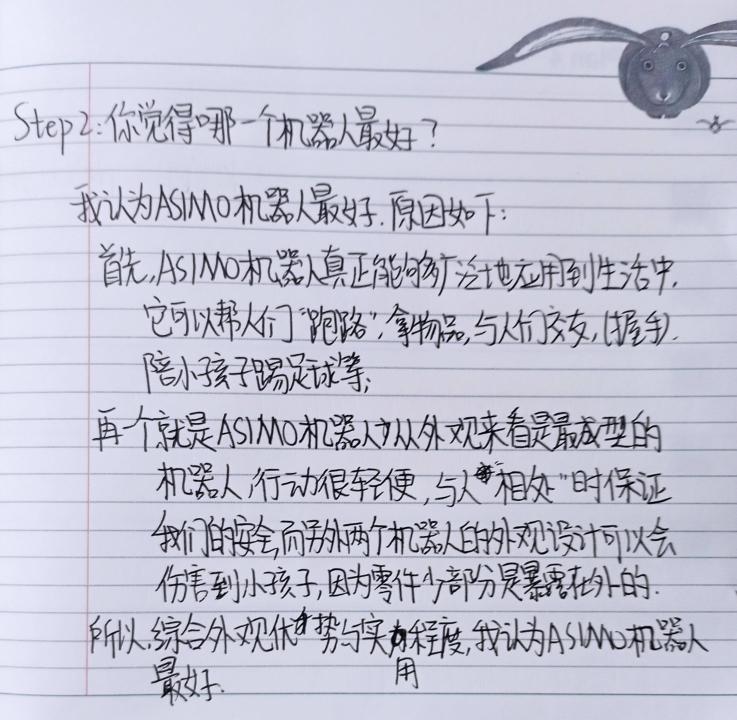 Step2:你觉得哪一个机器人最好?
我认为ASIMO机器人最好.原因如下:
首先,ASIMO机器人真正能够广泛地应用到生活中.
它可以帮人们"跑路",拿物品,与人们交友,(握手).
陪小孩子踢足球等;
再一个就是ASIMO机器人从外观来看是最成型的
机器人,行动很轻便,与人"相处"时保证
我们的安全,而另外两个机器人的外观设计可以会
伤害到小孩子,因为零件部分是暴露在外的.
所以,综合外观优势与实用程度,我认为ASIMO机器人
最好.